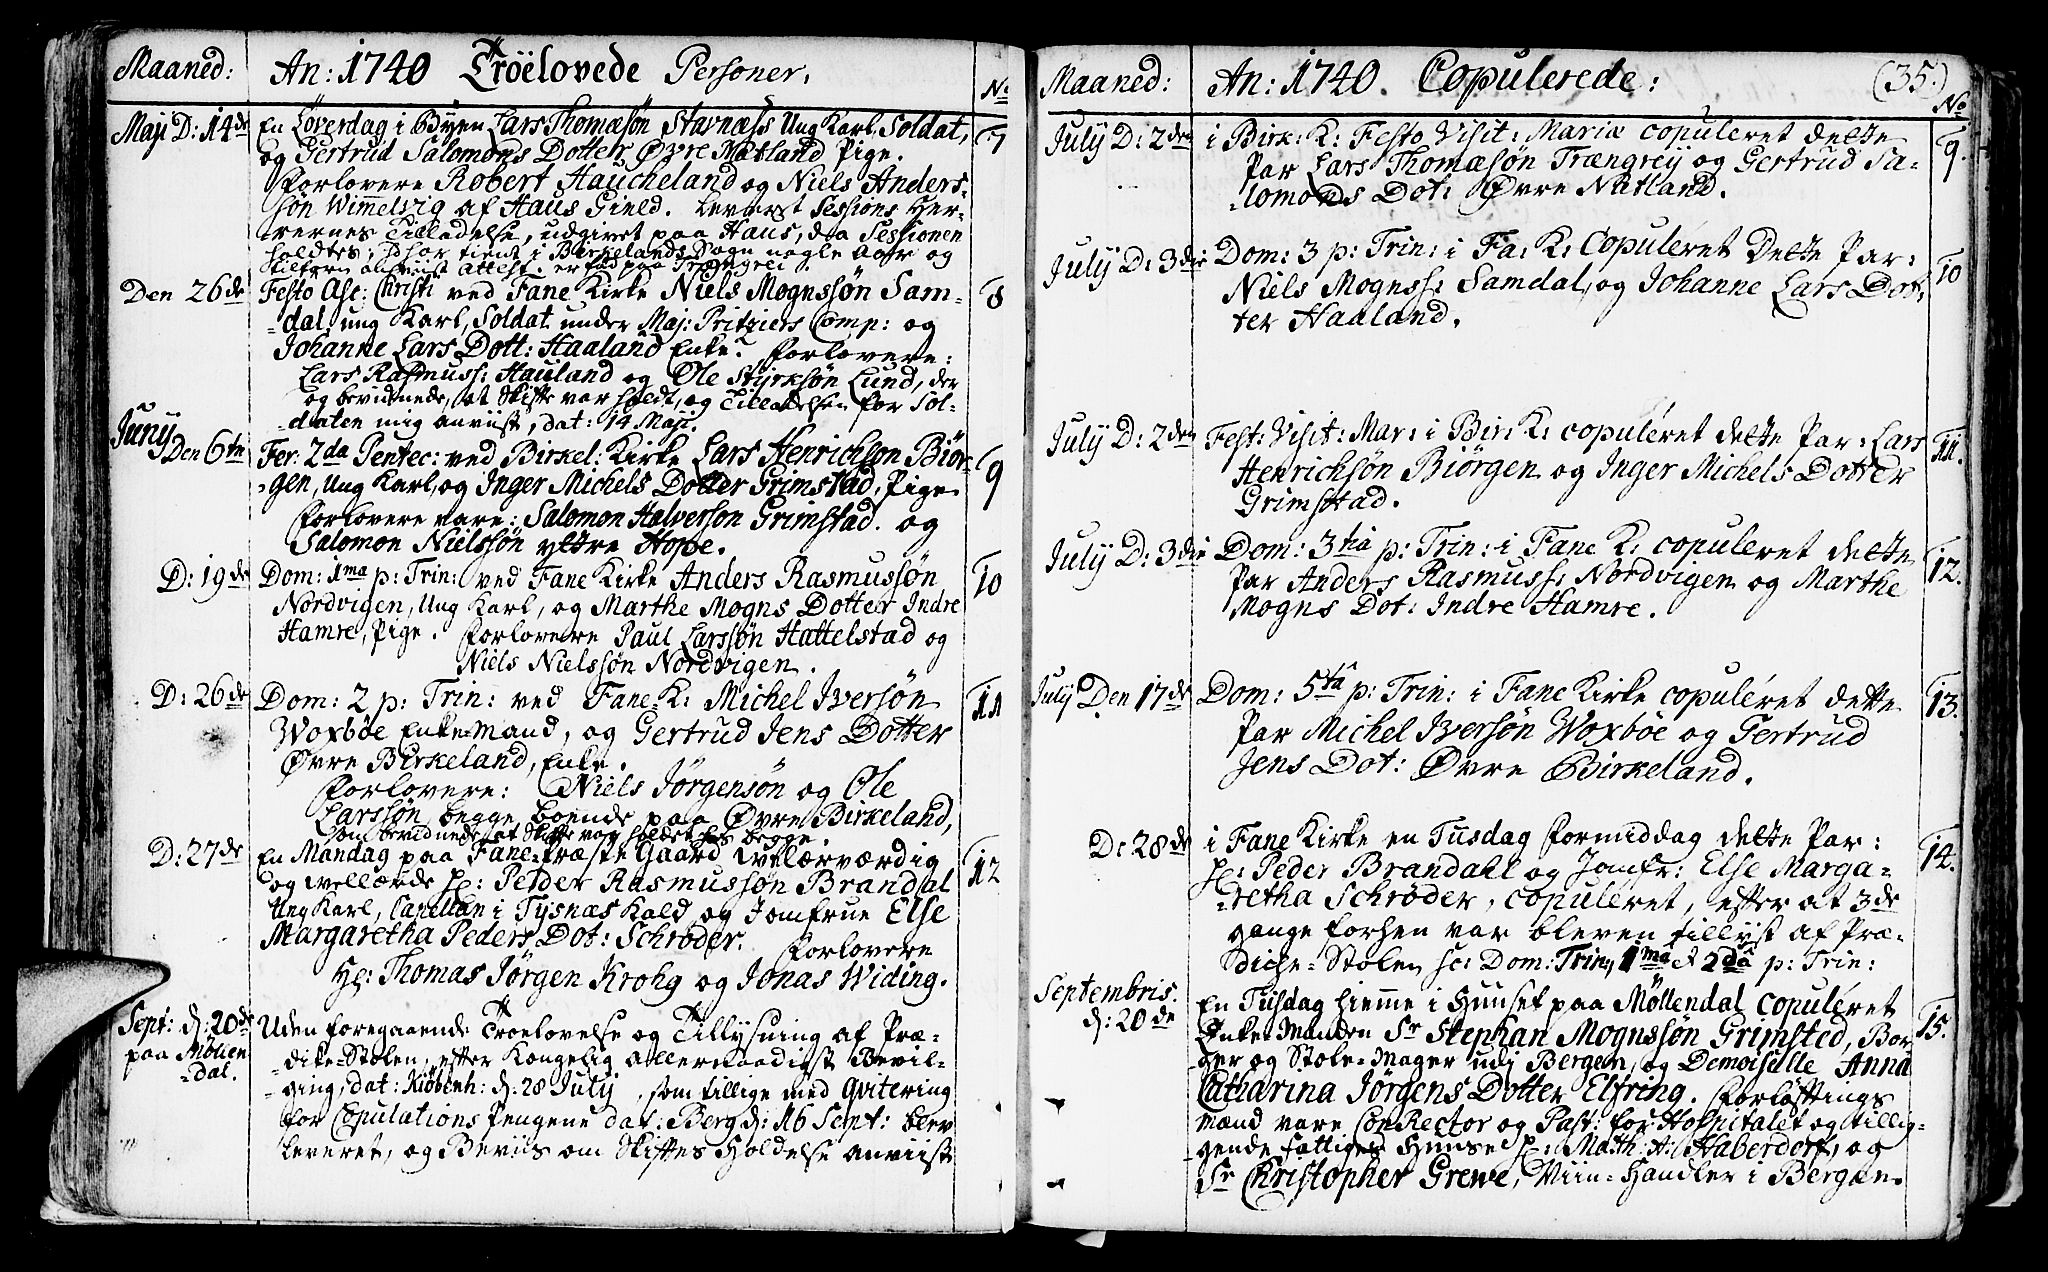 Maaned: An: 1740 Troëlovede Personer. No
Maji D: 14de En Løverdag i Byen Lars Thomæsøn Stavnæss Ung Karl, Soldat, 7
og Gertrud Salomons Dotter Øvre Natland Pige.
Forlovere Robert Haucheland og Niels Anders-
søn Wimmelvig af Haus Gield. leveret Sessions Her-
rernes Tilladelse, udgivet paa Haus, da Sessionen
holdtes; hand har tient i Birkelands Sogn nogle Aar og
attest. er fød paa Trængrei
Den 26de Festo Asc: Christi ved Fane Kirke Niels Mognssøn Sam- 8
-dal, ung Karl, Soldat under Maj: Pritziers Comp: og
Johanne Lars Dott: Haaland Enke. Forlovere:
Lars Rasmuss: Hauland og Ole Styrksøn Lund, der
og bevidnede, at Skifte var holdt, og Tilladelsen for Sol-
-daten mig anviist, dat: 14 Maji.
Junij Den 6te Fer: 2da Pentec: ved Birkel: Kirke Lars Henrichsøn Biør- 9
-gen, Ung Karl, og Inger Michels Dotter Grimstad, Pige
Forlovere vare: Salomon Halversøn Grimstad. og
Salomon Nielssøn yttre Hope.
D: 19de Dom: 1ma p: Trin: ved Fane Kirke Anders Rasmussøn 10
Nordvigen, Ung Karl, og Marthe Mogns Dotter Indre
Hamre, Pige. Forlovere Paul Larssøn Hattelstad og
Niels Nielssøn Nordvigen.
D: 26de Dom: 2 p: Trin: ved Fane K: Michel Iversøn 11
Woxbøe Enkemand, og Gertrud Jens Dotter
Øvre Birkeland, Enke.
Forlovere: Niels Jørgensøn og Ole
Larssøn, begge boende paa Øvre Birkeland,
som bevidnede, at Skifte var holdet hos begge.
D: 27de En Mandag paa Fane-Præste Gaard Welærværdig 12
og Wellærde Hr: Peder Rasmussøn Brandal
Ung Karl, Capellan i Tysnæs Kald og Jomfrue Else
Margaretha Peders Dot: Schrøder. Forlovere
Hr: Thomas Jørgen Krohg og Jonas Widing.
Sept: d: 20de Uden foregaaende Troelovelse og Tillysning af Præ-
paa Møllen- -dike-Stolen, efter Kongelig allernaadigst Bevil-
-dal. -ging, dat: Kiöbenh: d: 28 July, som tillige med Qvitering
for Copulations Pengene dat: Berg d: 16 Sept: blev
leveret, og Beviis om Skiftes Holdelse anviist
Maaned: An: 1740. Copulerede: (35.) No
July D: 2den i Birk: K: Festo Visit: Mariæ copuleret dette 9.
Par Lars Thomæsøn Trængreij og Gertrud Sa-
-lomons Dot: Øvre Natland.
July D: 3die Dom: 3 p: Trin: i Fa: K: Copuleret Dette Par: 10
Niels Mognss: Samdal, og Johanne Lars Dot-
ter Haaland.
July D: 2den Fest: Visit: Mar: i Bir: K: copuleret dette Par: Lars 11.
Henrichsøn Biørgen og Inger Michels Dotter
Grimstad.
July D: 3die Dom: 3tia p: Trin: i Fane K: copuleret dette 12.
Par Anders Rasmuss: Nordvigen og Marthe
Mogns Dot: Indre Hamre.
July Den 17de Dom: 5ta p: Trin: i Fane Kirke copuleret dette 13.
Par Michel Iversøn Woxbøe og Gertrud
Jens Dot: Øvre Birkeland.
D: 28de i Fane Kirke en Tiisdag Formiddag dette Par: 14.
Hr: Peder Brandahl og Jomfr: Else Marga-
-retha Schrøder, copuleret, efter at 3de
gange forhen var bleven tillyst af Præ-
dicke-Stolen sc: Dom: Trin, 1ma et 2da p: Trin:
Septembris. En Tiisdag hiemme i Huuset paa Möllendal copuleret 15.
d: 20de Enke-Manden Sr Stephan Mognssøn Grimsted, Bor-
-ger og Stole-mager udj Bergen, og Demoiselle Anna
Catharina Jørgens Dotter Elfring. Forløftings
mænd vare ConRector og Past: for Hospitalet og tillig-
-gende Fattiges Huuse Hr: Math: A: Haberdorf, og
Sr Christopher Grewe, Viin-Handler i Bergen.